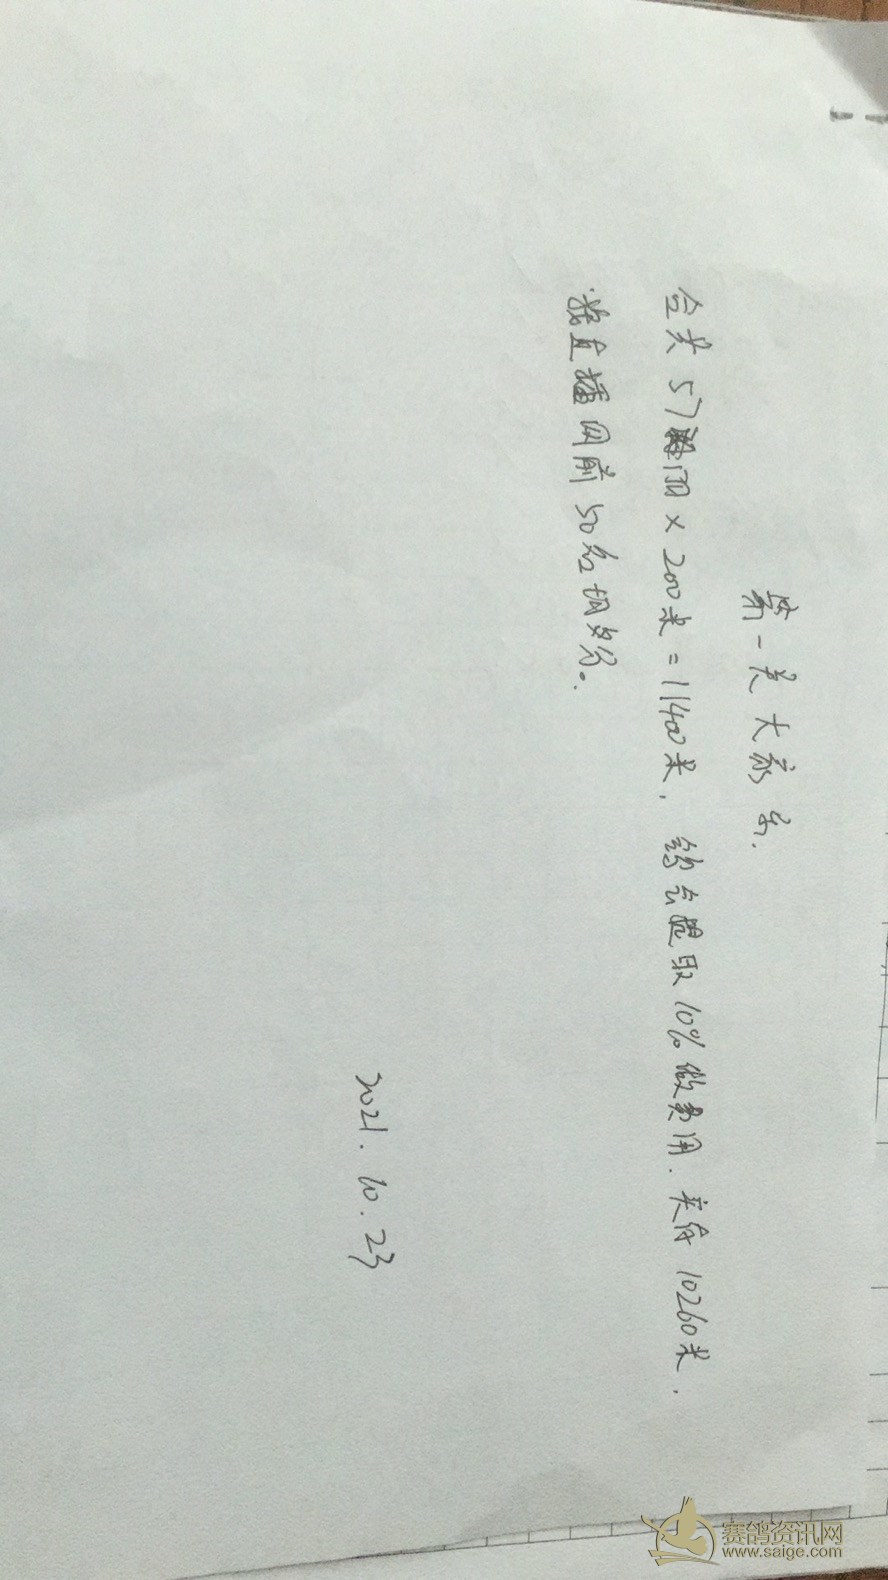 第一关大家乐.
合关57羽×200米=11400米, 鸽会提取10%做费用. 实付10260米,
按直播网前50名均分。
2021.10.23
赛鸽资讯网
www.saige.com